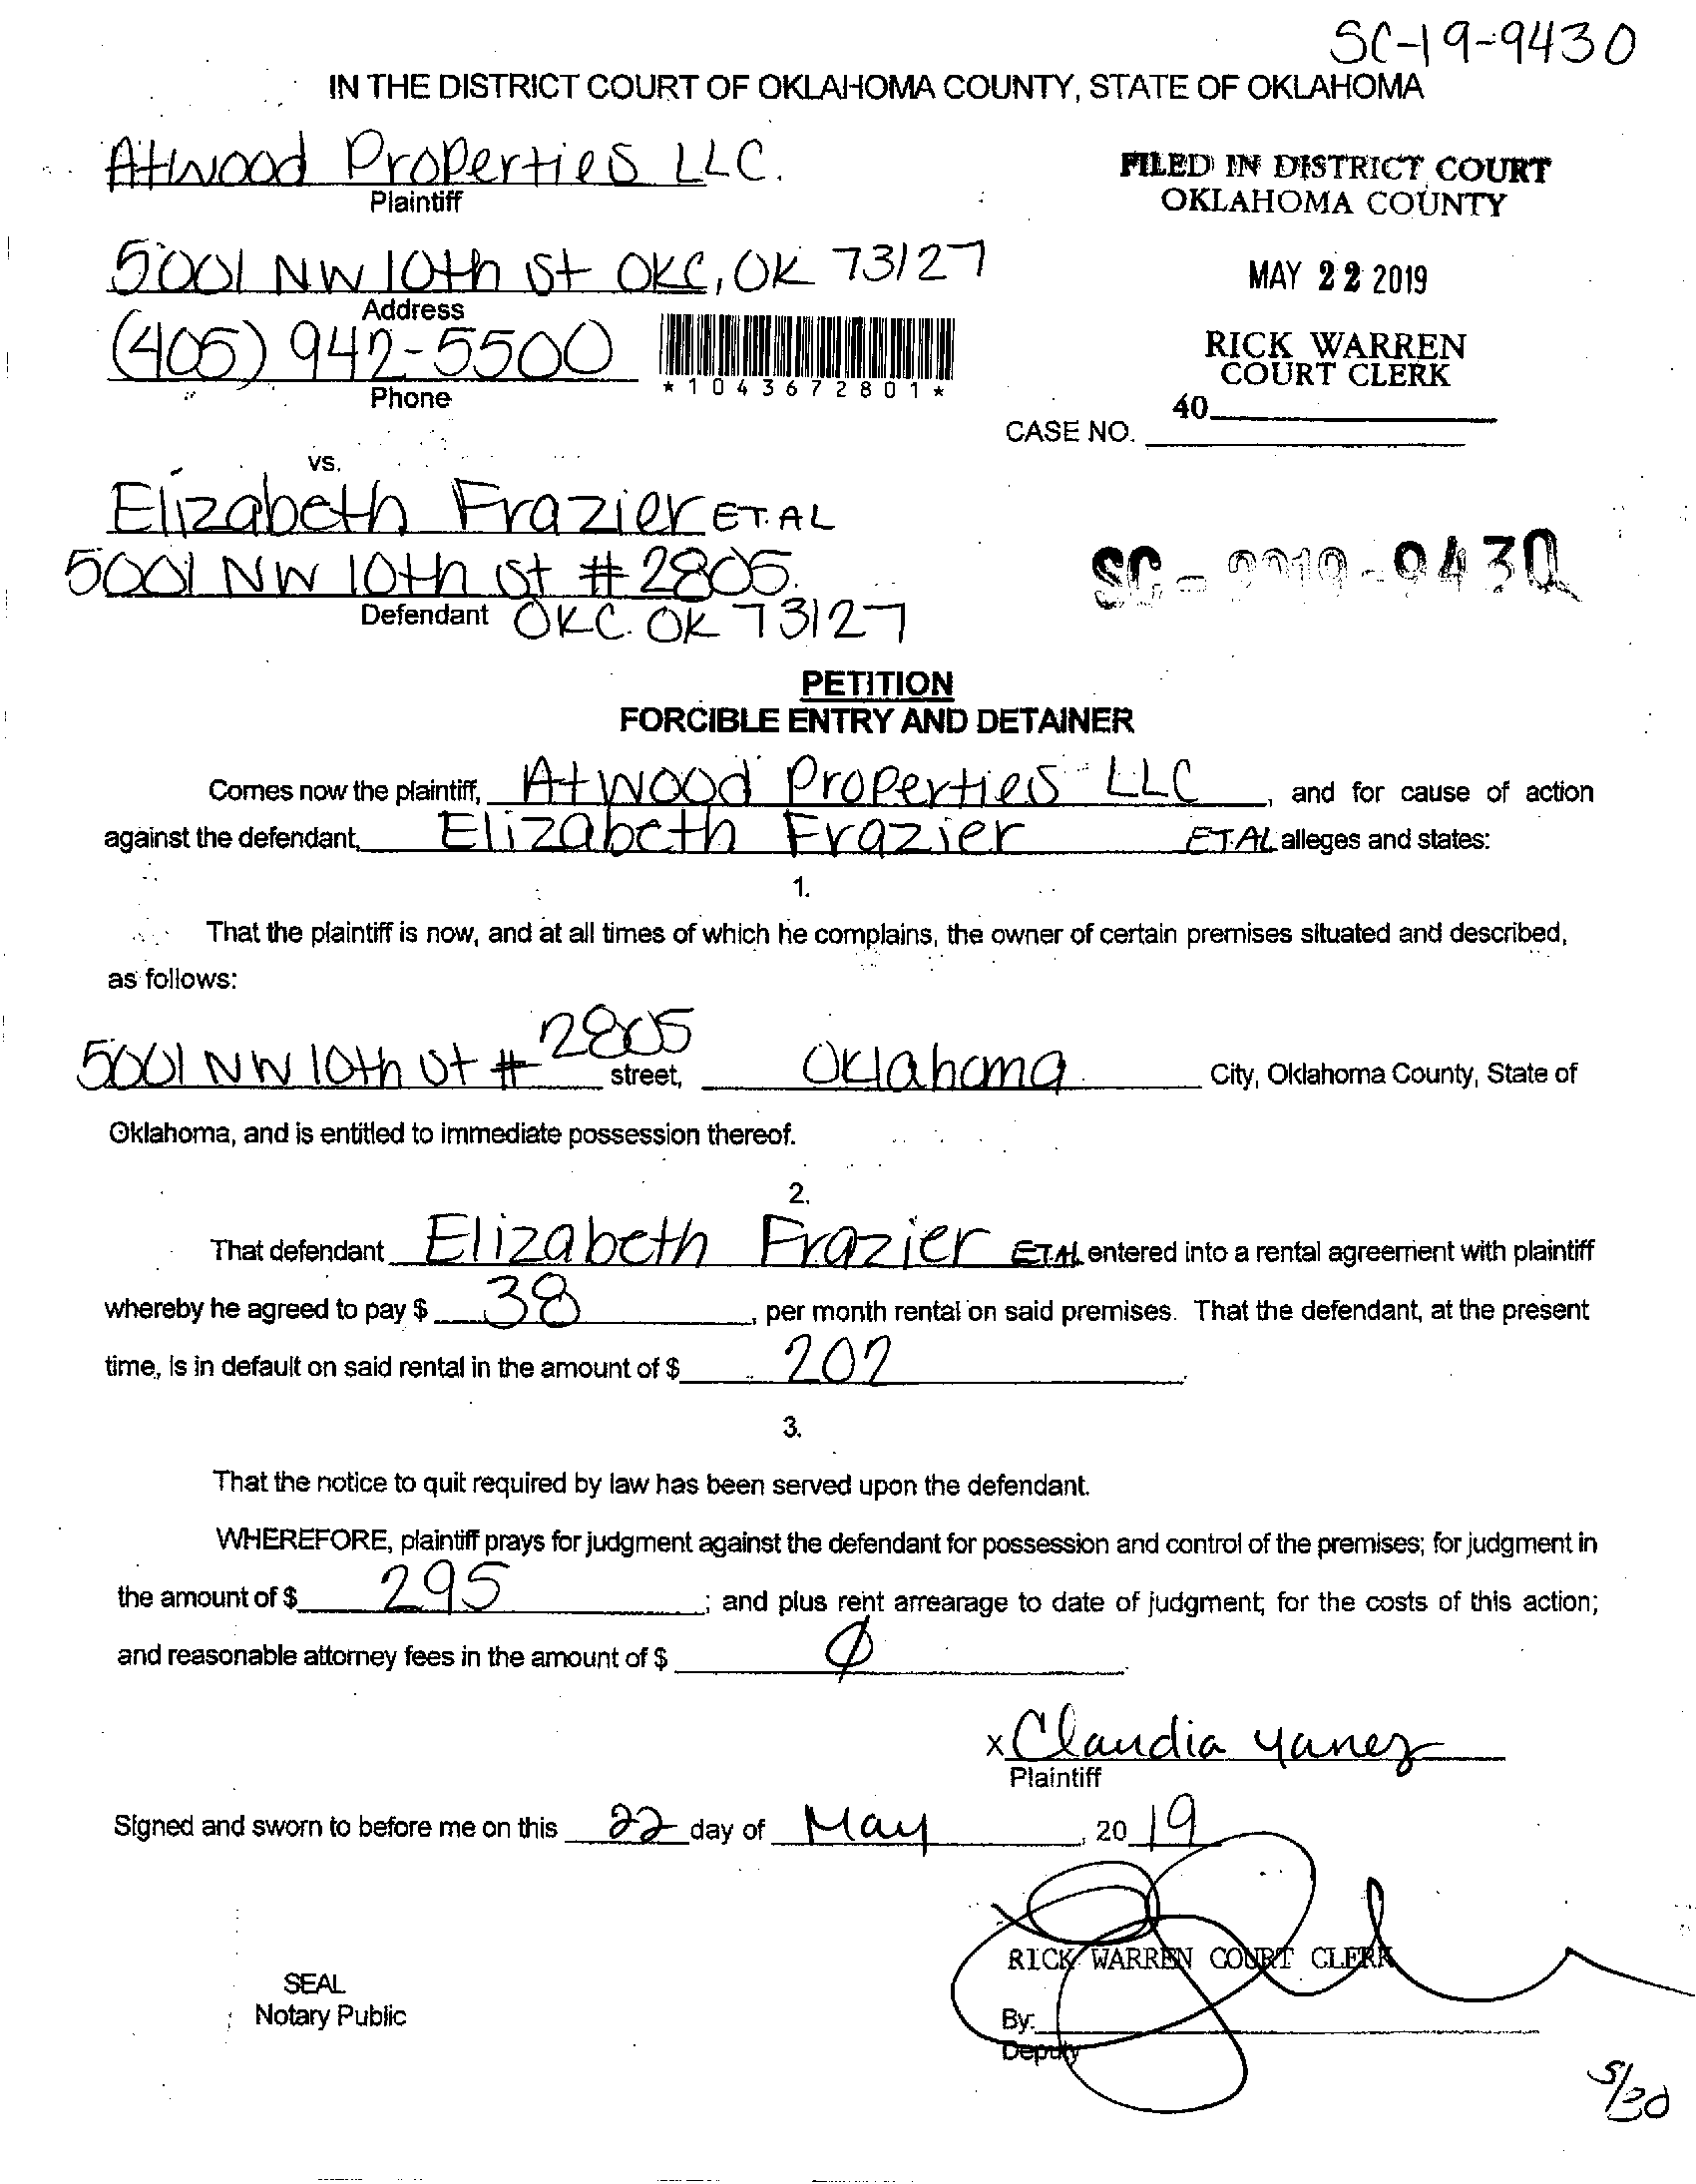 SC-19-9430
IN THE DISTRICT COURT OF OKLAHOMA COUNTY, STATE OF OKLAHOMA
Atwood Properties LLC.
Plaintiff
FILED IN DISTRICT COURT
OKLAHOMA COUNTY
5001 NW 10th St OKC, OK 73127
Address
MAY 22 2019
(405) 942-5500
Phone
*1043672801*
RICK WARREN
COURT CLERK
40
CASE NO.
vs.
Elizabeth Frazier ET. AL
5001 NW 10th St # 2805.
Defendant OKC. OK 73127
SC - 2019 - 9430
PETITION
FORCIBLE ENTRY AND DETAINER
Comes now the plaintiff, Atwood Properties LLC, and for cause of action
against the defendant, Elizabeth Frazier ET.AL alleges and states:
1.
That the plaintiff is now, and at all times of which he complains, the owner of certain premises situated and described,
as follows:
5001 NW 10th St # 2805 street, Oklahoma City, Oklahoma County, State of
Oklahoma, and is entitled to immediate possession thereof.
2.
That defendant Elizabeth Frazier ET.AL entered into a rental agreement with plaintiff
whereby he agreed to pay $ 38, per month rental on said premises. That the defendant, at the present
time, is in default on said rental in the amount of $ 202.
3.
That the notice to quit required by law has been served upon the defendant.
WHEREFORE, plaintiff prays for judgment against the defendant for possession and control of the premises; for judgment in
the amount of $ 295; and plus rent arrearage to date of judgment; for the costs of this action;
and reasonable attorney fees in the amount of $ Ø.
x Claudia Yanez
Plaintiff
Signed and sworn to before me on this 22 day of May, 2019
RICK WARREN COURT CLERK
SEAL
Notary Public
By:
Deputy
5/30